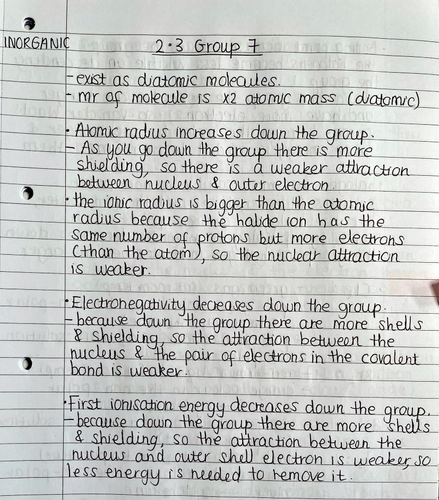 INORGANIC
2.3 Group 7
- exist as diatomic molecules.
- mr of molecule is x2 atomic mass (diatomic)
• Atomic radius increases down the group.
- As you go down the group there is more
shielding, so there is a weaker attraction
between nucleus & outer electron
• the ionic radius is bigger than the atomic
radius because the halide ion has the
same number of protons but more electrons
(than the atom), so the nuclear attraction
is weaker.
• Electronegativity decreases down the group.
- because down the group there are more shells
& shielding, so the attraction between the
nucleus & the pair of electrons in the covalent
bond is weaker.
• First ionisation energy decreases down the group.
- because down the group there are more shells
& shielding, so the attraction between the
nucleus and outer shell electron is weaker, so
less energy is needed to remove it.